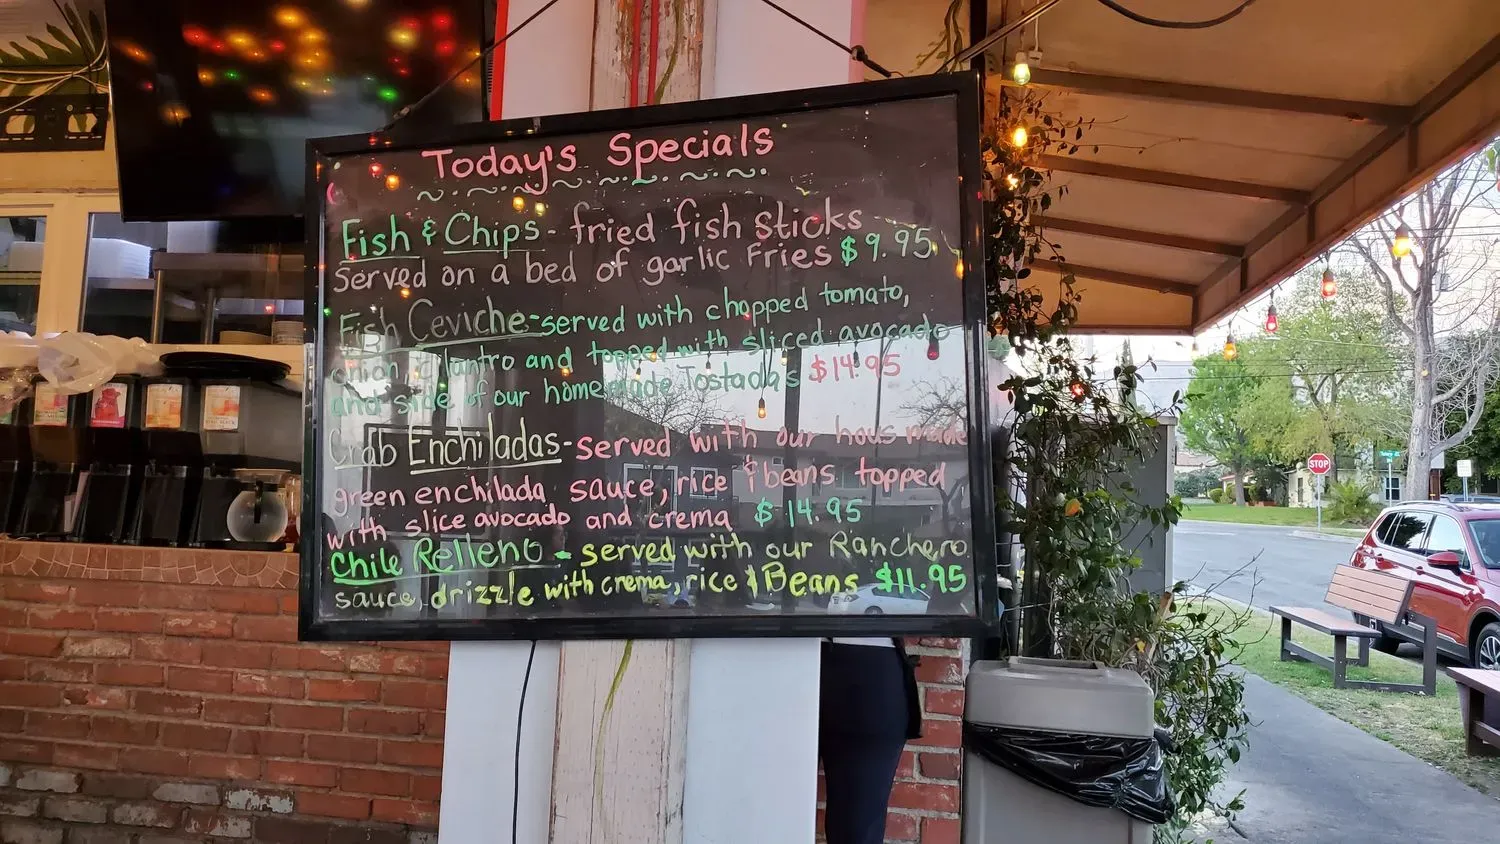 Today's Specials
Fish & Chips - fried fish sticks
served on a bed of garlic Fries $9.95
Fish Ceviche - served with chopped tomato,
onion, cilantro and topped with sliced avocado
and side of our homemade Tostadas $14.95
Crab Enchiladas - served with our housmade
green enchilada sauce, rice & beans topped
with slice avocado and crema $14.95
Chile Relleno - served with our Ranchero
sauce, drizzle with crema, rice & Beans $11.95
STOP